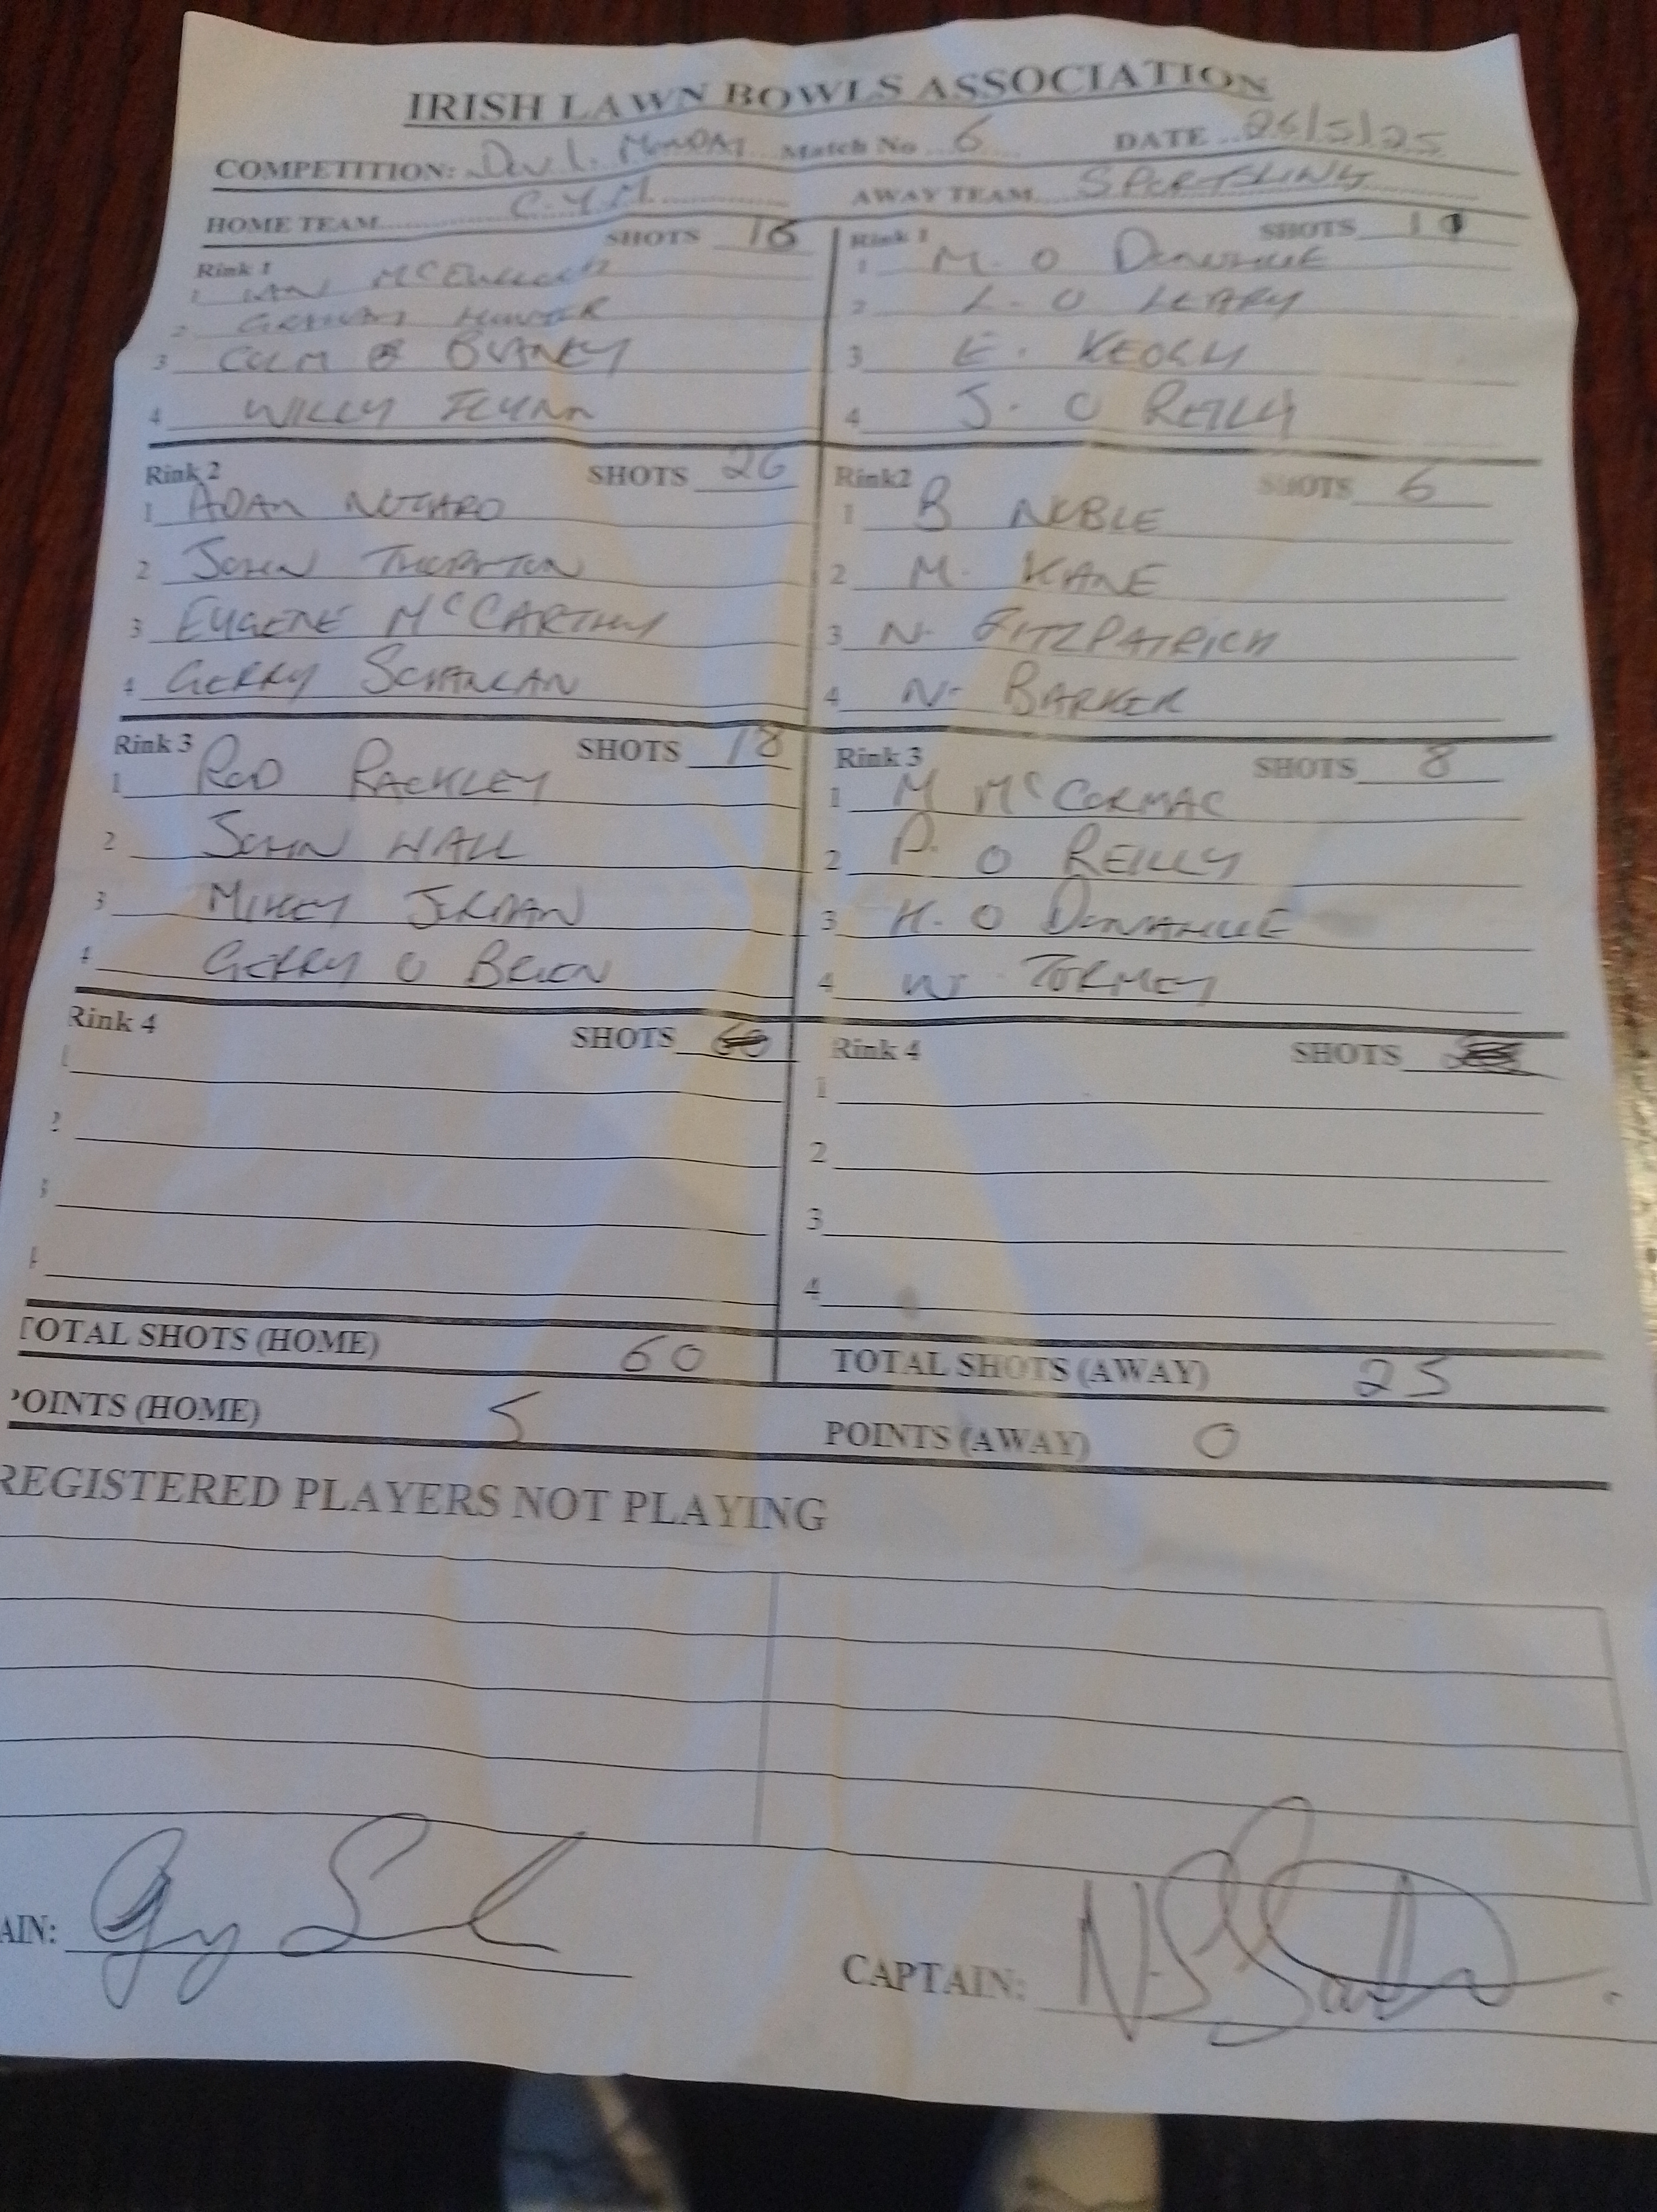 IRISH LAWN BOWLS ASSOCIATION
COMPETITION: Div 1. MONDAY Match No 6 DATE 26/5/25
HOME TEAM C.Y.M. AWAY TEAM SPORTSLINK
Rink 1 SHOTS 16
1 IAN
2 GRAHAM HUNTER
3 COLM BLANEY
4 WILLY FLYNN
Rink 1 SHOTS 11
1 M. O DONOHUE
2 L. O LEARY
3 E. KEOGH
4 J. O REILLY
Rink 2 SHOTS 26
1 ADAN NOTARO
2 JOHN THORNTON
3 EUGENE McCARTHY
4 GERRY SCHANLAN
Rink2 SHOTS 6
1 B NOBLE
2 M. KANE
3 N. FITZPATRICK
4 N. BARKER
Rink 3 SHOTS 18
1 ROD RACKLEY
2 JOHN WALL
3 MIKEY JORDAN
4 GERRY O BRIEN
Rink 3 SHOTS 8
1 M McCORMAC
2 P. O REILLY
3 H. O DONAHUE
4 W. TORMEY
Rink 4 SHOTS 60
1
2
3
4
Rink 4 SHOTS
1
2
3
4
TOTAL SHOTS (HOME) 60 TOTAL SHOTS (AWAY) 25
POINTS (HOME) 5 POINTS (AWAY) 0
REGISTERED PLAYERS NOT PLAYING
AIN: CAPTAIN: